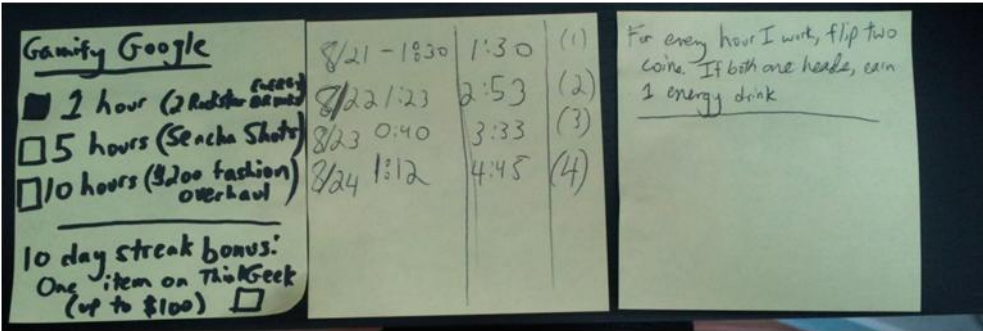 Gamify Google
1 hour (2 Rockstar energy drinks)
5 hours (Sencha Shots)
10 hours ($200 fashion
overhaul)
10 day streak bonus:
One item on ThinkGeek
(up to $100)
8/21 - 1:30 1:30 (1)
8/22 1:23 2:53 (2)
8/23 0:40 3:33 (3)
8/24 1:12 4:45 (4)
For every hour I work, flip two
coins. If both are heads, earn
1 energy drink